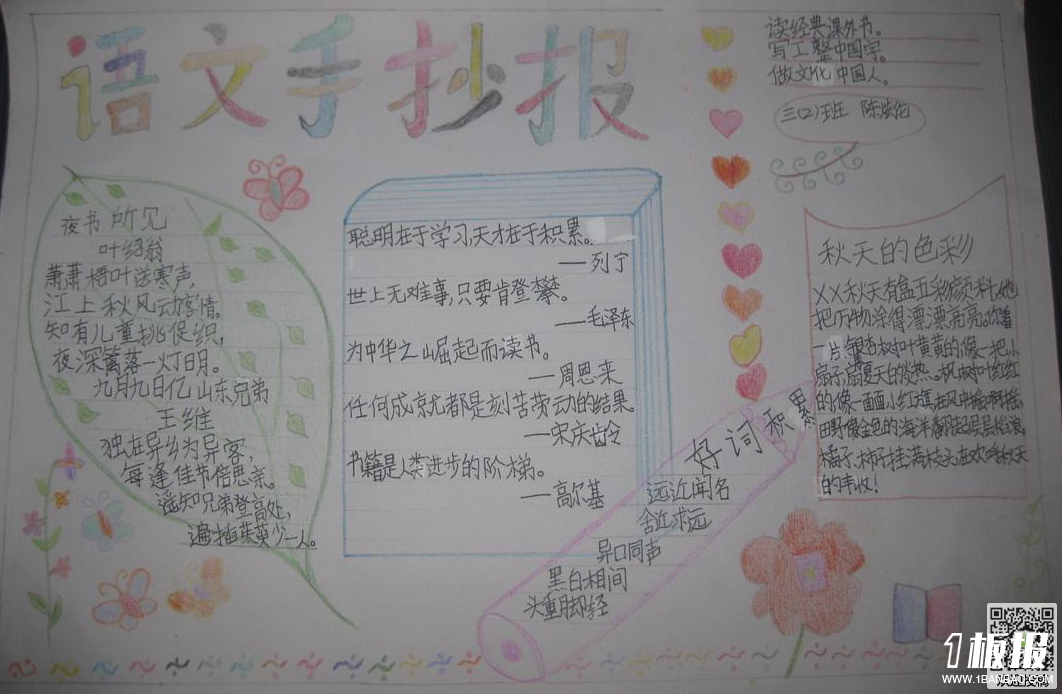 语文手抄报
读经典课外书。
写工整中国字。
做文化中国人。
三(2)班 陈
夜书所见
叶绍翁
萧萧梧叶送寒声,
江上秋风动客情。
知有儿童挑促织,
夜深篱落一灯明。
九月九日忆山东兄弟
王维
独在异乡为异客,
每逢佳节倍思亲。
遥知兄弟登高处,
遍插茱萸少一人。
聪明在于学习,天才在于积累。
——列宁
世上无难事,只要肯登攀。
——毛泽东
为中华之崛起而读书。
——周恩来
任何成就都是刻苦劳动的结果。
——宋庆龄
书籍是人类进步的阶梯。
——高尔基
好词积累
远近闻名
舍近求远
异口同声
黑白相间
头重脚轻
秋天的色彩
XX秋天有盒五彩颜料,她
把万物涂得漂漂亮亮。你看
一片银杏树叶黄黄的像一把小
扇子,扇夏天的炎热。枫树叶红红
的像一面面小红旗在风中摇啊摇。
田野像金色的海洋翻起层层
橘子、柿子挂满枝头在欢唱秋天
的丰收!
1板报
WWW.1BANBAO.COM
欢迎投稿